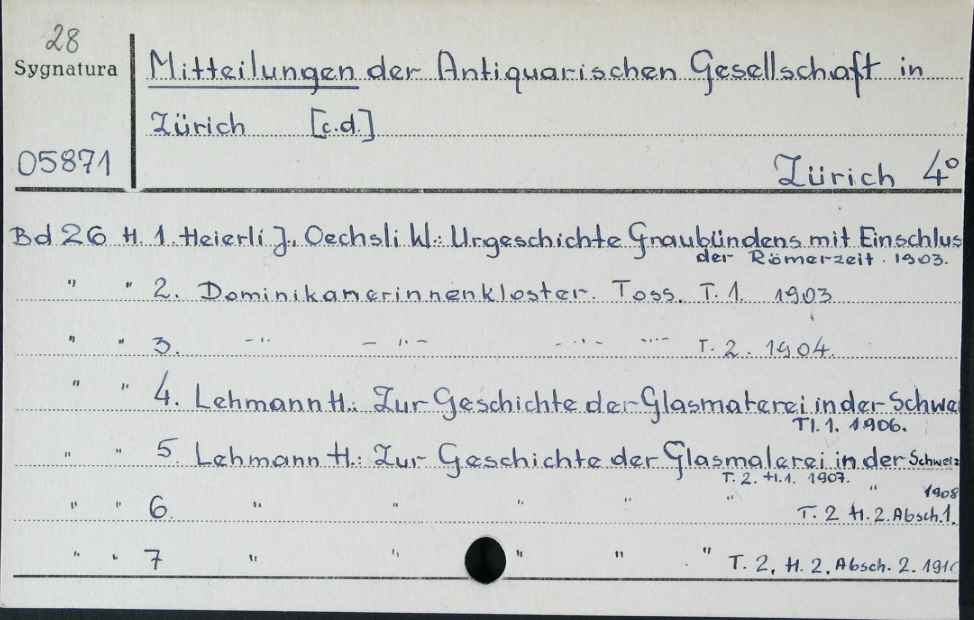 28
Sygnatura
Mitteilungen der Antiquarischen Gesellschaft in
Zürich [c.d.]
05871
Zürich 4°
Bd 26 H. 1. Heierli J., Oechsli W.: Urgeschichte Graubündens mit Einschlus
der Römerzeit. 1903.
" " 2. Dominikanerinnenkloster. Toss. T. 1. 1903
" " 3. -"- -"- -"- -"- T. 2. 1904.
" " 4. Lehmann H.: Zur Geschichte der Glasmalerei in der Schwe
Tl. 1. 1906.
" " 5. Lehmann H.: Zur Geschichte der Glasmalerei in der Schweiz
T. 2. H.1. 1907.
" " 6. " " " " " " 1908
T. 2 H. 2. Absch. 1.
" " 7 " " " " " T. 2. H. 2. Absch. 2. 191